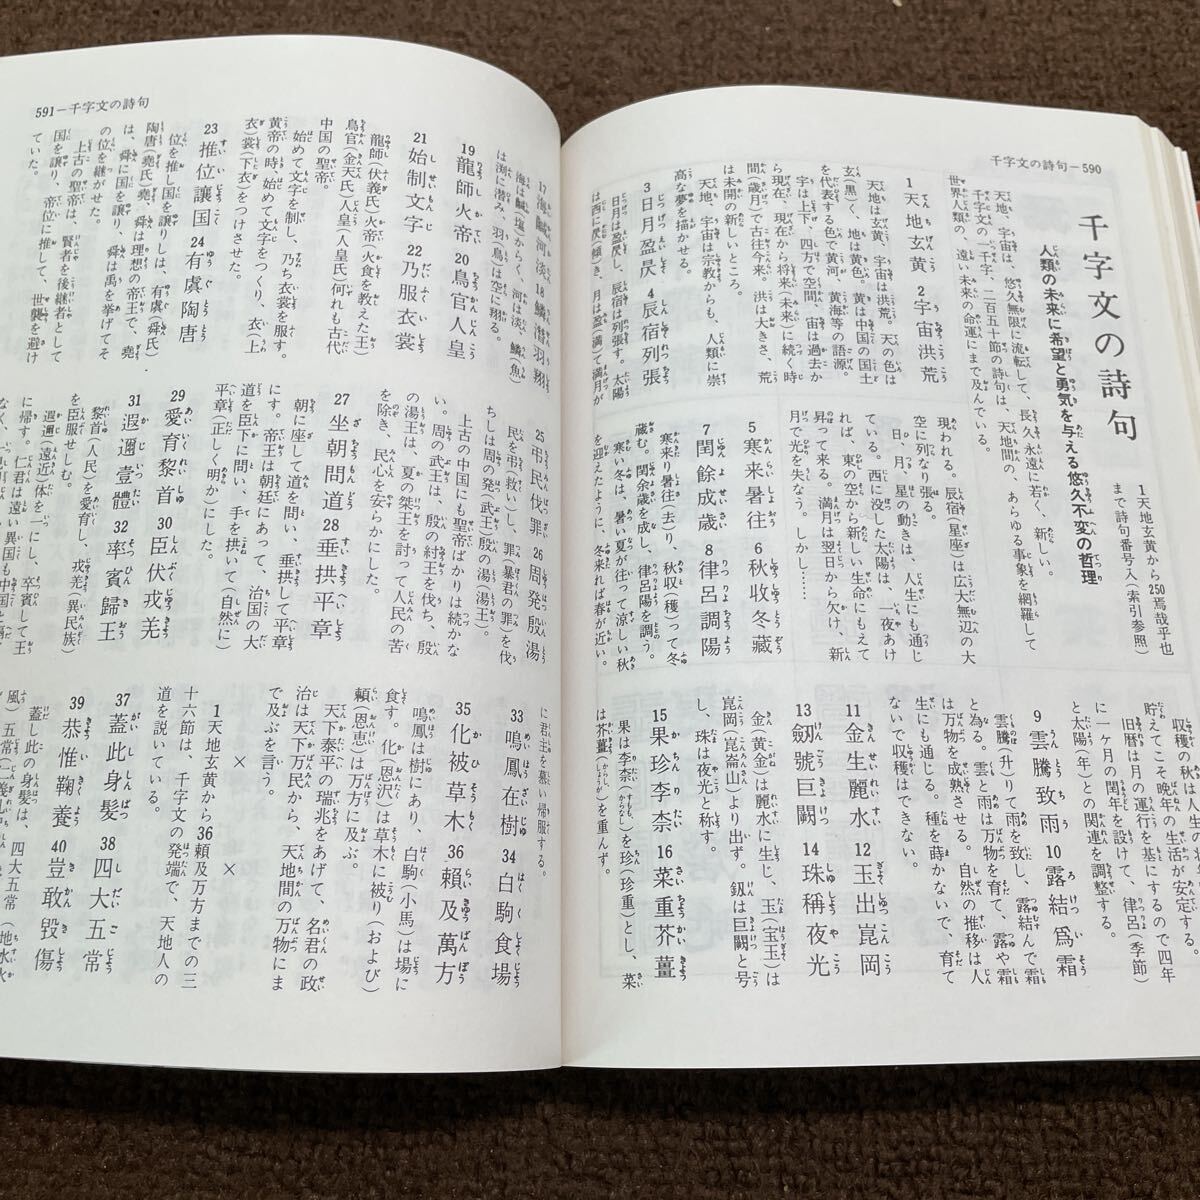 千字文の詩句―590
千字文の詩句
人類の未来に希望と勇気を与える悠久不変の哲理
1天地玄黄から250焉哉乎也
まで詩句番号入(索引参照)
天地、宇宙は、悠久無限に流転して、長久永遠に若く、新しい。
千字文の一千字、二百五十節の詩句は、天地間の、あらゆる事象を網羅して
世界人類の、遠い未来の命運にまで及んでいる。
1 天地玄黄 2 宇宙洪荒
天地は玄黄、宇宙は洪荒。天の色は
玄(黒)く、地は黄色。黄は中国の国土
を代表する色で黄河、黄海等の語源。
宇は上下、四方で空間、宙は過去か
ら現在、現在から将来(未来)に続く時
間、歳月で古往今来。洪は大きさ、荒
は未開の新しいところ。
天地、宇宙は宗教からも、人類に崇
高な夢を描かせる。
3 日月盈昃 4 辰宿列張
日月は盈昃し、辰宿は列張す。太陽
は西に昃(傾)き、月は盈(満)ちて満月が
現われる。辰宿(星座)は広大無辺の大
空に列なり張る。
日、月、星の動きは、人生にも通じ
ている。西に没した太陽は、一夜あけ
れば、東の空から新しい生命にもえて
昇って来る。満月は翌日から欠け、新
月で光を失なう。しかし……
5 寒来暑往 6 秋收冬藏
7 閏餘成歳 8 律呂調陽
寒来り暑往(去)り、秋収(穫)って冬
蔵む。閏余歳を成し、律呂陽を調う。
寒い冬は、暑い夏が往って涼しい秋
を迎えたように、冬来れば春が近い。
収穫の秋は人生の
貯えてこそ晩年の生活が安定する。
旧暦は月の運行を基にするので四年
に一ヶ月の閏年を設けて、律呂(季節)
と太陽(年)との関連を調整する。
9 雲騰致雨 10 露結爲霜
雲騰(升)りて雨を致し、露結んで霜
と為る。雲と雨は万物を育て、露や霜
は万物を成熟させる。自然の推移は人
生にも通じる。種を蒔かないで、育て
ないで収穫はできない。
11 金生麗水 12 玉出崑岡
13 劒號巨闕 14 珠稱夜光
金(黄金)は麗水に生じ、玉(宝玉)は
崑岡(崑崙山)より出ず。釼は巨闕と号
し、珠は夜光と称す。
15 果珍李柰 16 菜重芥薑
果は李柰(すもも、からなし)を珍(珍重)とし、菜
は芥薑(からし、しょうが)を重んず。
591―千字文の詩句
17 海鹹河淡 18 鱗潜羽翔
海は鹹(塩)からく、河は淡、鱗(魚)
は渕に潜み、羽(鳥)は空に翔る。
19 龍師火帝 20 鳥官人皇
龍師伏義氏)火帝(火食を教えた王)
鳥官(金天氏)人皇(人皇氏)何れも古代
中国の聖帝。
21 始制文字 22 乃服衣裳
始めて文字を制し、乃ち衣裳を服す。
黄帝の時、始めて文字をつくり、衣(上
衣)裳(下衣)をつけさせた。
23 推位讓国 24 有虞陶唐
位を推し国を譲りしは、有虞(舜氏)
陶唐(堯氏)堯、舜は理想の帝王で、堯
は、舜に国を譲り、舜は禹を挙げてそ
の位を継がせた。
上古の聖帝は、賢者を後継者として
国を譲り、帝位に推して、世襲を避け
ていた。
25 弔民伐罪 26 周発殷湯
民を弔(救い)し、罪(暴君の罪)を伐
ちしは周の発(武王)殷の湯(湯王)。
上古の中国にも聖帝ばかりは続かな
い。周の武王は、殷の紂王を伐ち、殷
の湯王は、夏の桀王を討って人民の苦
を除き、民心を安らかにした。
27 坐朝問道 28 垂拱平章
朝に座して道を問い、垂拱して平章
にす。帝王は朝廷にあって、治国の大
道を臣下に問い、手を拱いて(自然に)
平章(正しく明か)にした。
29 愛育黎首 30 臣伏戎羌
31 遐邇壹體 32 率賓歸王
黎首(人民)を愛育し、戎羌(異民族)
を臣服せしむ。
遐邇(遠近)体を一にし、卒賓して王
に帰す。仁君は遠い異国も中国と
に君主を慕い帰服する。
33 鳴鳳在樹 34 白駒食場
35 化被草木 36 賴及萬方
鳴鳳は樹にあり、白駒(小馬)は場に
食す。化(恩沢)は草木に被り(および)
頼(恩恵)は万方に及ぶ。
天下泰平の瑞兆をあげて、名君の政
治は天下万民から、天地間の万物にま
で及ぶを言う。
×　×　×
1天地玄黄から36頼及万方までの三
十六節は、千字文の発端で、天地人の
道を説いている。
37 蓋此身髪 38 四大五常
39 恭惟鞠養 40 豈敢毀傷
蓋し此の身髪は、四大五常(地水火
風)五常(